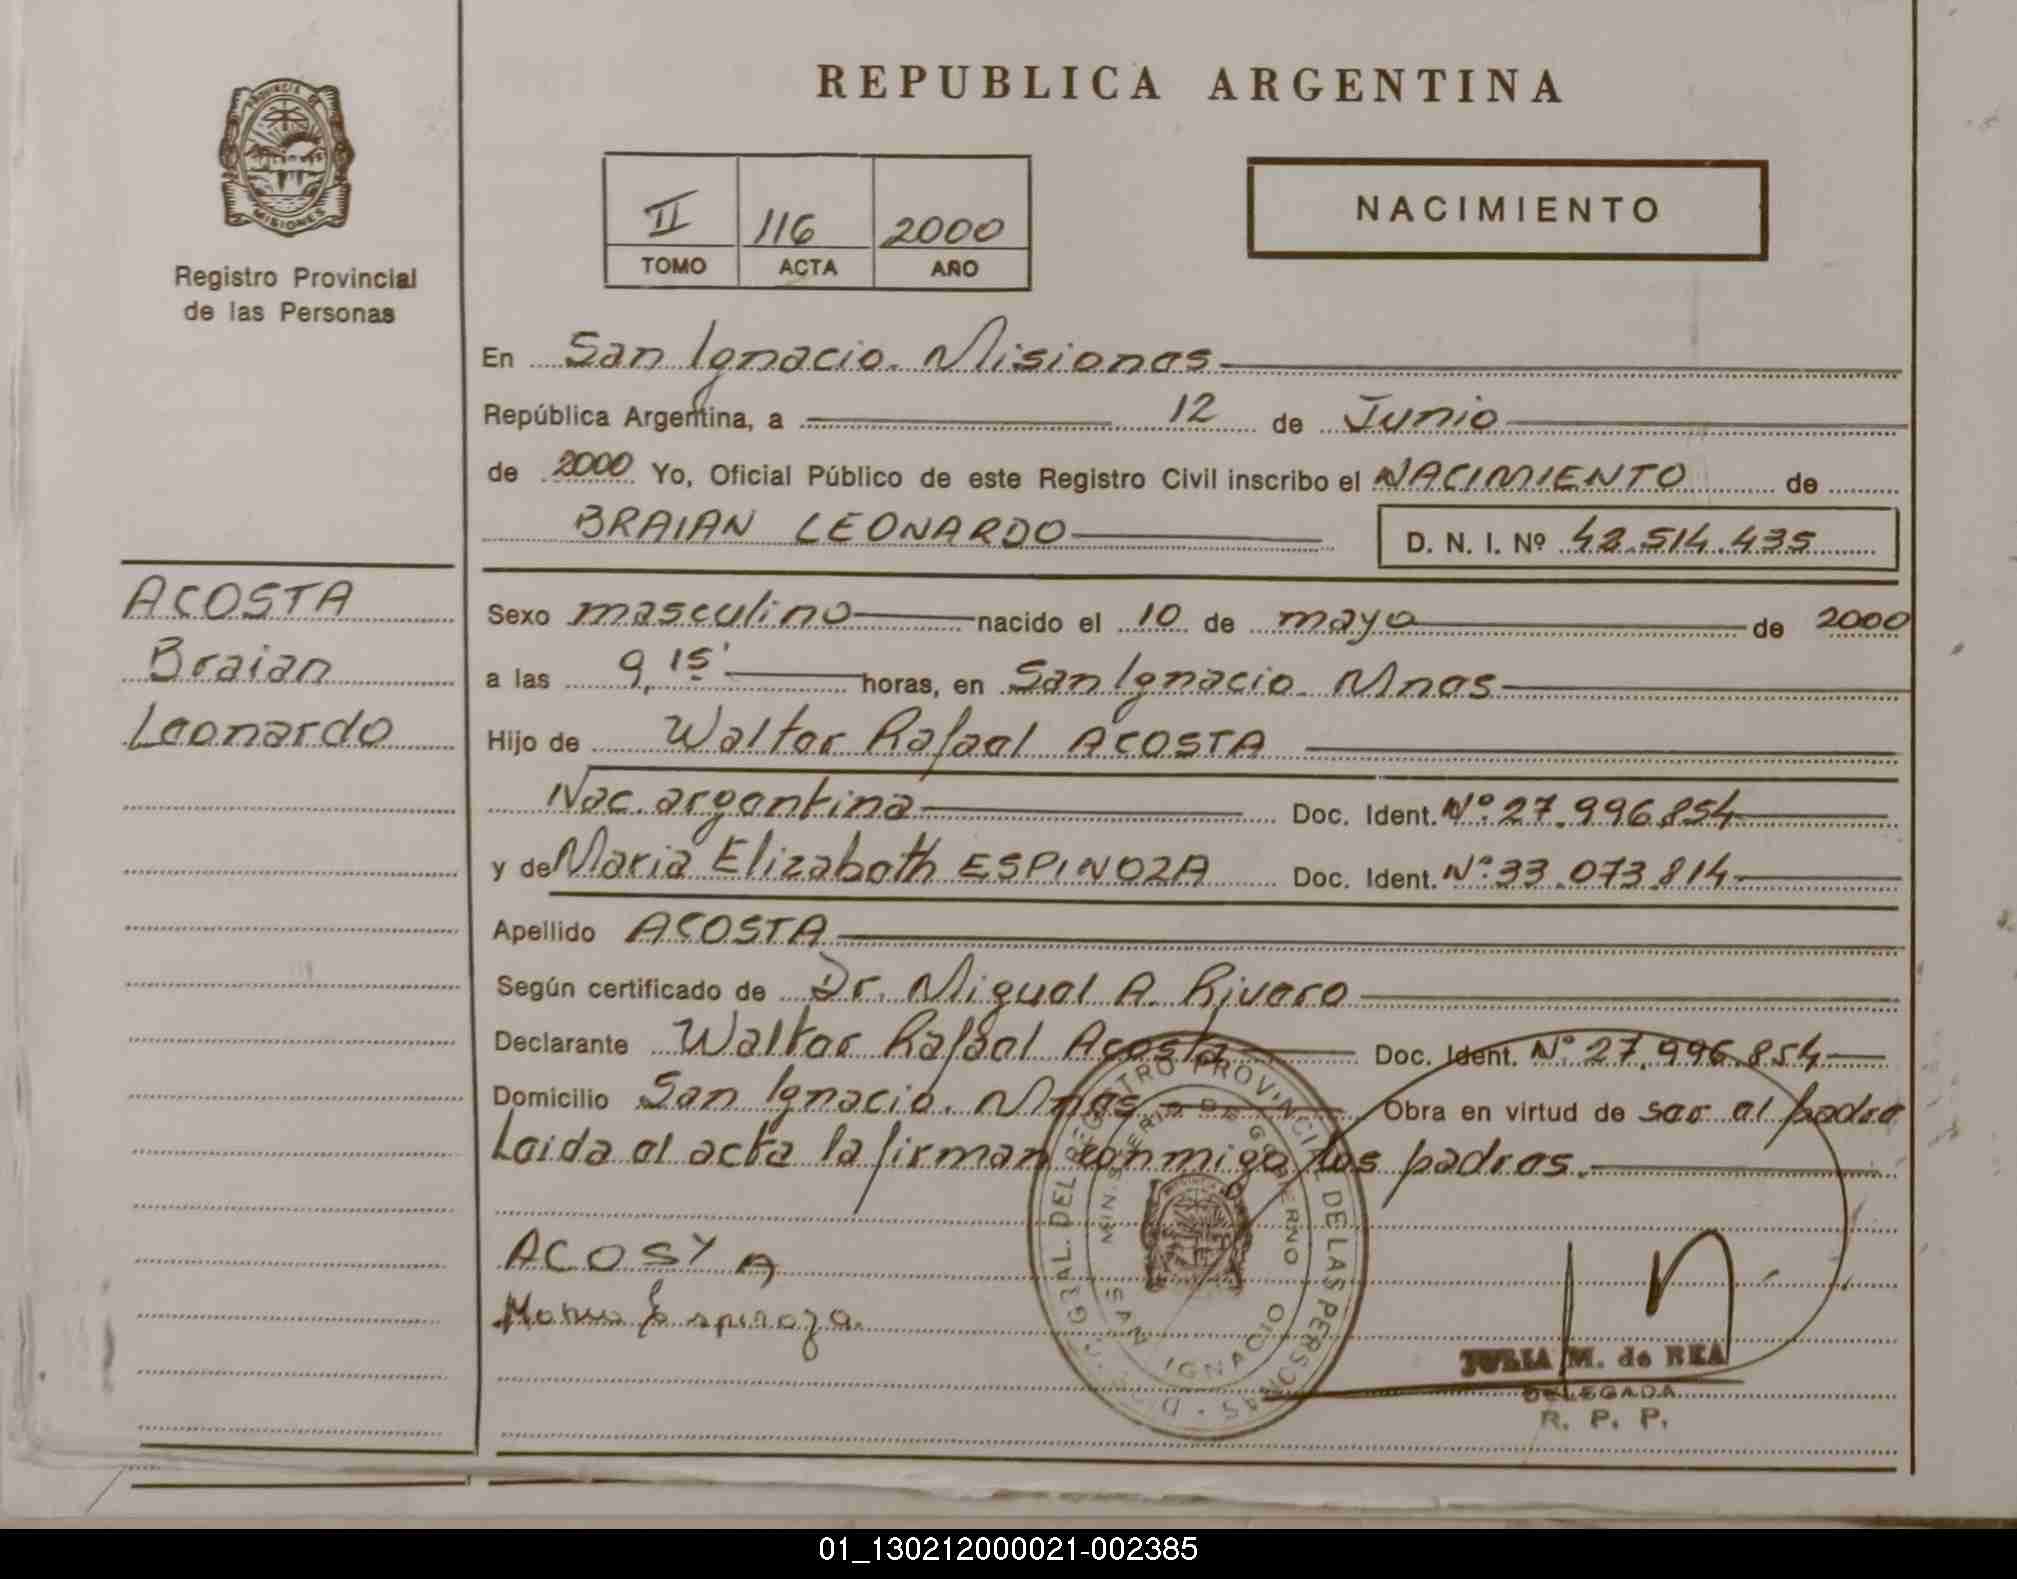 REPUBLICA ARGENTINA
PROVINCIA DE
MISIONES
Registro Provincial
de las Personas
II 116 2000
TOMO ACTA AÑO
NACIMIENTO
En San Ignacio. Misiones
República Argentina, a 12 de Junio
de 2000 Yo, Oficial Público de este Registro Civil inscribo el NACIMIENTO de
BRAIAN LEONARDO D. N. I. Nº 42.514.435
ACOSTA
Braian
Leonardo
Sexo masculino nacido el 10 de mayo de 2000
a las 9,15' horas, en San Ignacio. Mnes
Hijo de Walter Rafael ACOSTA
Nac. argentina Doc. Ident. Nº 27.996.854
y de Maria Elizabeth ESPINOZA Doc. Ident. Nº 33.073.814
Apellido ACOSTA
Según certificado de Dr. Miguel A. Rivero
Declarante Walter Rafael Acosta Doc. Ident. Nº 27.996.854
Domicilio San Ignacio. Mnes Obra en virtud de ser el padre
Leida el acta la firman conmigo los padres.
ACOSTA
Espinoza
GRAL. DEL REGISTRO PROVINCIAL DE LAS PERSONAS
MINISTERIO DE GOBIERNO
SAN IGNACIO
JULIA M. de REA
DELEGADA
R. P. P.
01_130212000021-002385